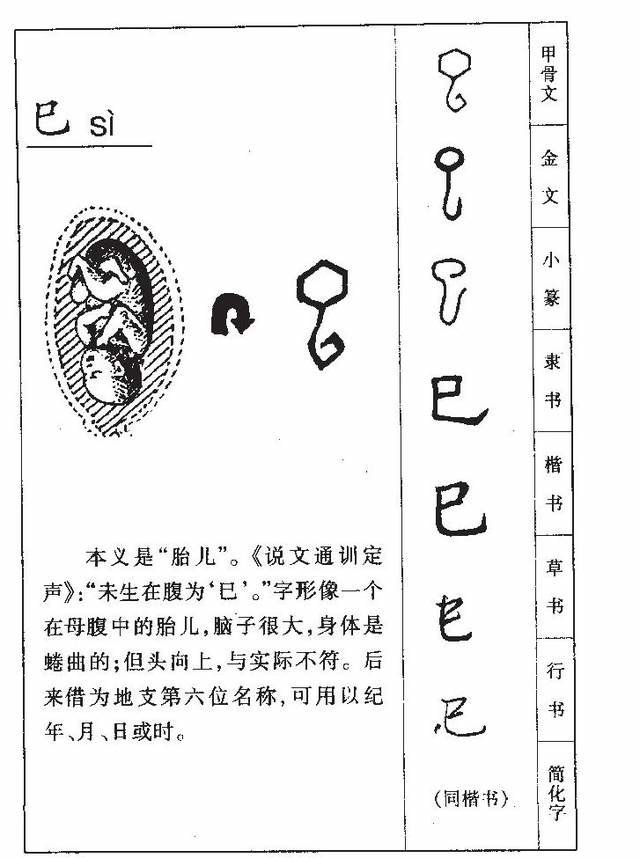 巳 sì
本义是“胎儿”。《说文通训定
声》：“未生在腹为‘巳’。”字形像一个
在母腹中的胎儿，脑子很大，身体是
蜷曲的；但头向上，与实际不符。后
来借为地支第六位名称，可用以纪
年、月、日或时。
甲骨文
金文
小篆
隶书
巳
楷书
巳
草书
巳
行书
巳
简化字
（同楷书）